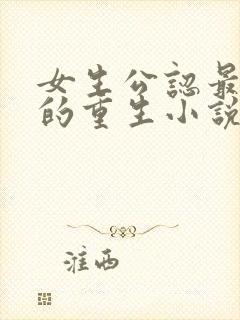 女生公認最
的重生小說
淮西